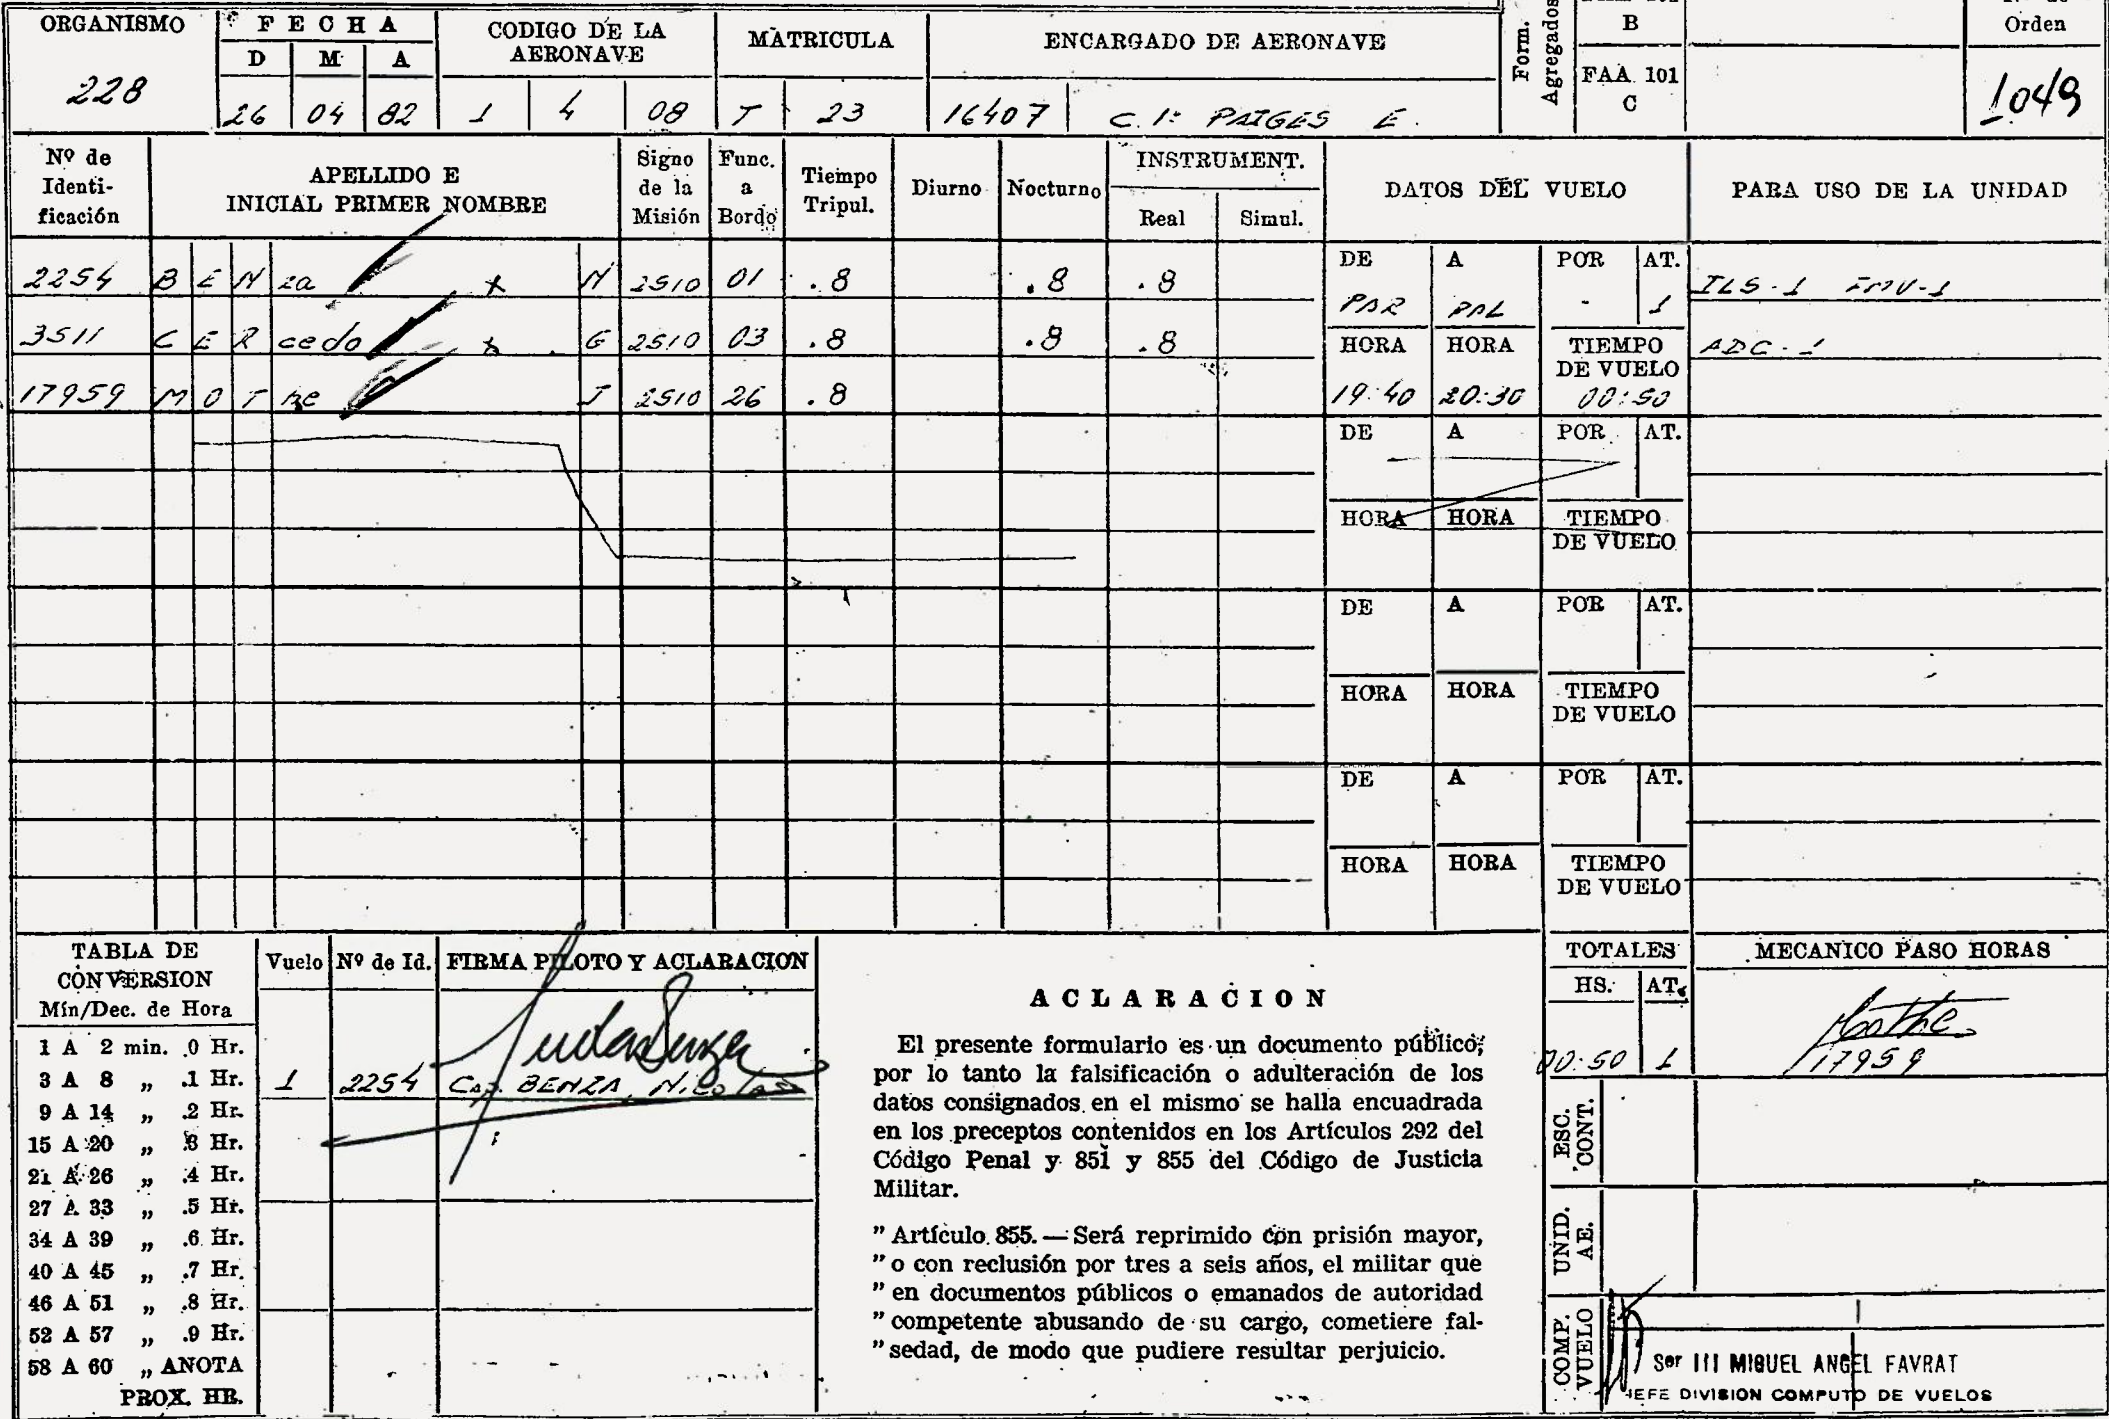 ORGANISMO
228
FECHA
D M A
26 04 82
CODIGO DE LA
AERONAVE
1 4 08
MATRICULA
T 23
ENCARGADO DE AERONAVE
16407 C. 1º PAIGES E.
Form.
Agregados
B
FAA 101
C
Orden
1049
Nº de
Identi-
ficación
APELLIDO E
INICIAL PRIMER NOMBRE
Signo
de la
Misión
Func.
a
Bordo
Tiempo
Tripul.
Diurno
Nocturno
INSTRUMENT.
Real Simul.
DATOS DEL VUELO
PARA USO DE LA UNIDAD
2254 BENza x N 2510 01 .8 .8 .8
3511 CERcedo x G 2510 03 .8 .8 .8
17959 MOThe J 2510 26 .8
DE A POR AT.
PAR PAL - 1
HORA HORA TIEMPO
DE VUELO
19:40 20:30 00:50
ILS-1 FMU-1
ADC-1
DE A POR AT.
HORA HORA TIEMPO
DE VUELO
DE A POR AT.
HORA HORA TIEMPO
DE VUELO
DE A POR AT.
HORA HORA TIEMPO
DE VUELO
TABLA DE
CONVERSION
Min/Dec. de Hora
1 A 2 min. .0 Hr.
3 A 8 „ .1 Hr.
9 A 14 „ .2 Hr.
15 A 20 „ .3 Hr.
21 A 26 „ .4 Hr.
27 A 33 „ .5 Hr.
34 A 39 „ .6 Hr.
40 A 45 „ .7 Hr.
46 A 51 „ .8 Hr.
52 A 57 „ .9 Hr.
58 A 60 „ ANOTA
PROX. HR.
Vuelo Nº de Id. FIRMA PILOTO Y ACLARACION
1 2254 Cap. BENZA, Nicolas
ACLARACION
El presente formulario es un documento público,
por lo tanto la falsificación o adulteración de los
datos consignados en el mismo se halla encuadrada
en los preceptos contenidos en los Artículos 292 del
Código Penal y 851 y 855 del Código de Justicia
Militar.
" Artículo 855. — Será reprimido con prisión mayor,
" o con reclusión por tres a seis años, el militar que
" en documentos públicos o emanados de autoridad
" competente abusando de su cargo, cometiere fal-
" sedad, de modo que pudiere resultar perjuicio.
TOTALES
HS. AT.
00:50 1
MECANICO PASO HORAS
Mothe
17959
ESC.
CONT.
UNID.
AE.
COMP.
VUELO
Ser III MIGUEL ANGEL FAVRAT
JEFE DIVISION COMPUTO DE VUELOS